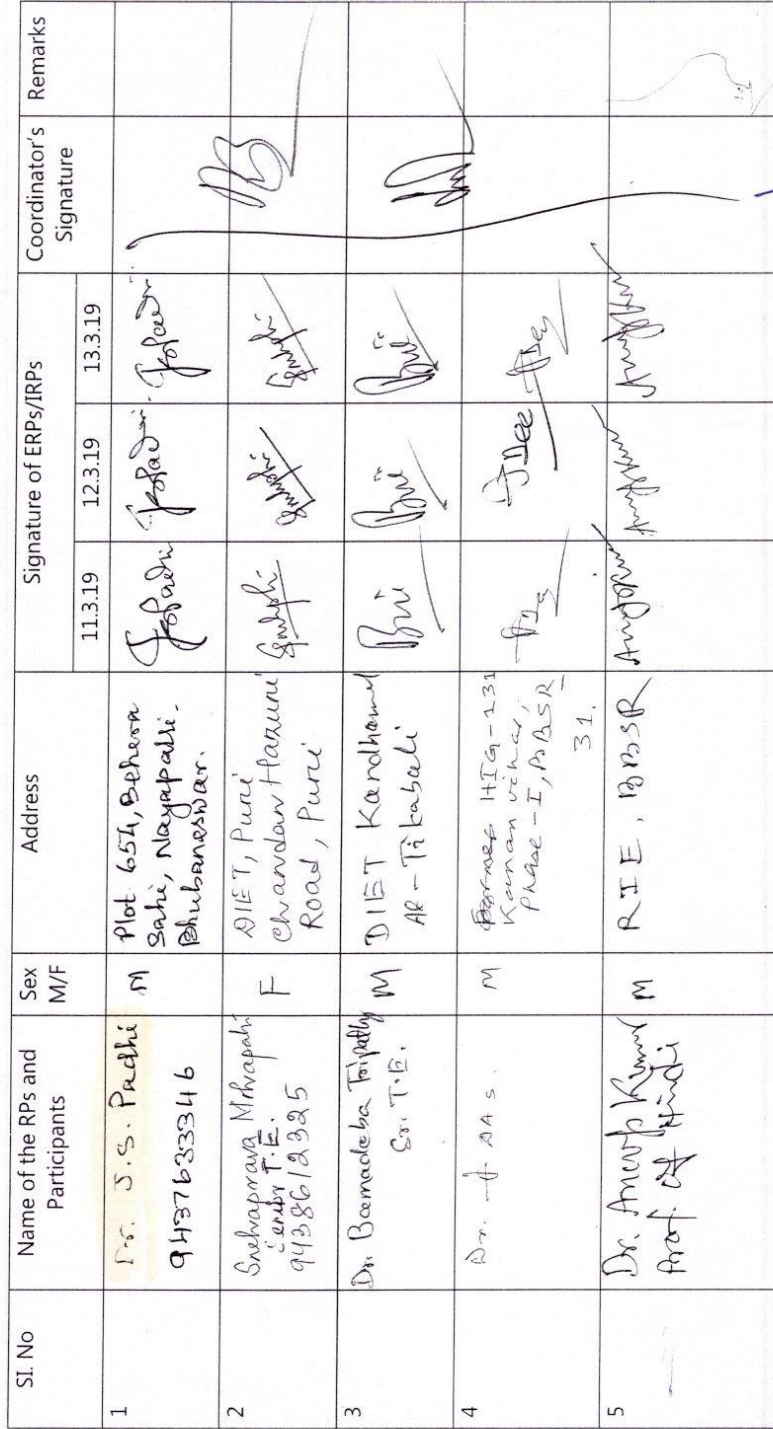 SI. No
Name of the RPs and
Participants
Sex
M/F
Address
Signature of ERPs/IRPs
11.3.19
12.3.19
13.3.19
Coordinator's
Signature
Remarks
1
Dr. J.S. Padhi
9437633346
M
Plot 654, Behera
Sahi, Nayapalli.
Bhubaneswar.
2
Snehaprava Mohapatra
Senior T.E.
9438612325
F
DIET, Puri
Chandan Hazuri
Road, Puri
3
Dr. Bamadeba Tripathy
Sr. T.E.
M
DIET Kandhamal
At - Tikabali
4
Dr. A DAS.
M
HIG-131
Kanan vihar,
Phase-I, BBSR
31.
5
Dr. Anoop Kumar
Prof. of Hindi
M
RIE, BBSR